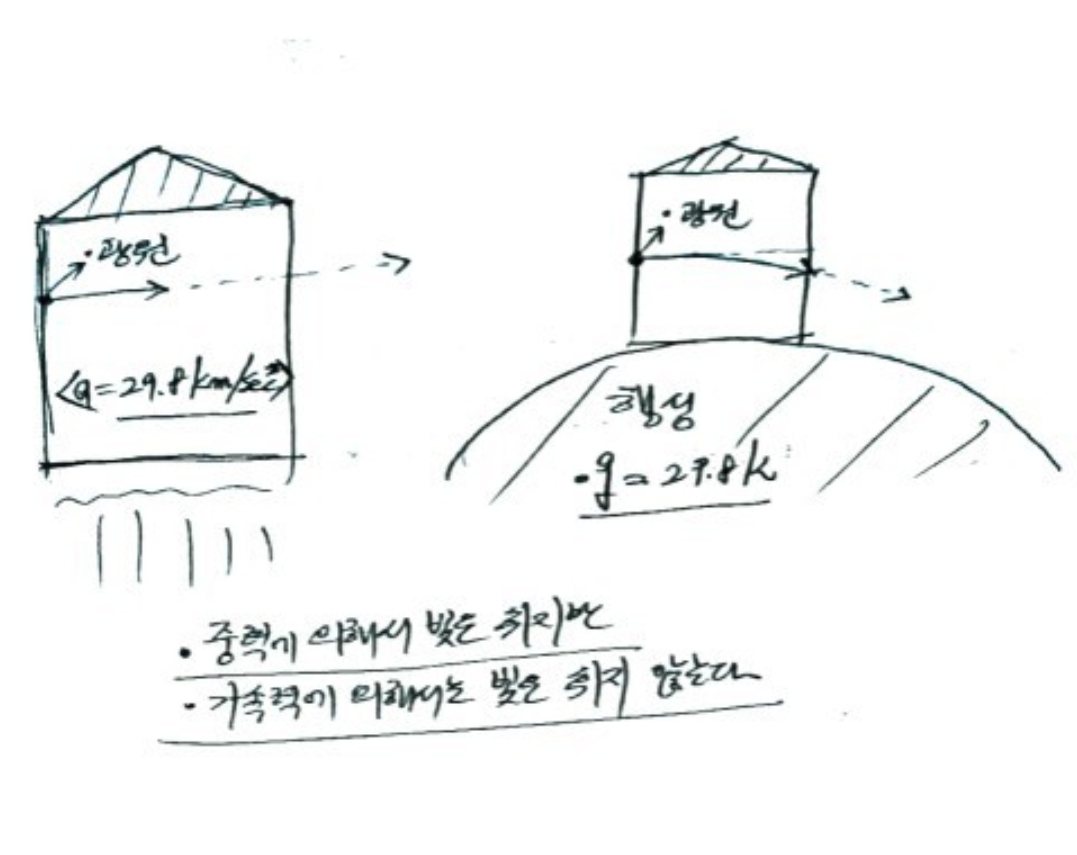 ·광원
·광원
<g=29.8km/sec²>
행성
·g=29.8k
· 중력에 의해서 빛은 휘지만
· 가속력에 의해서는 빛은 휘지 않는다